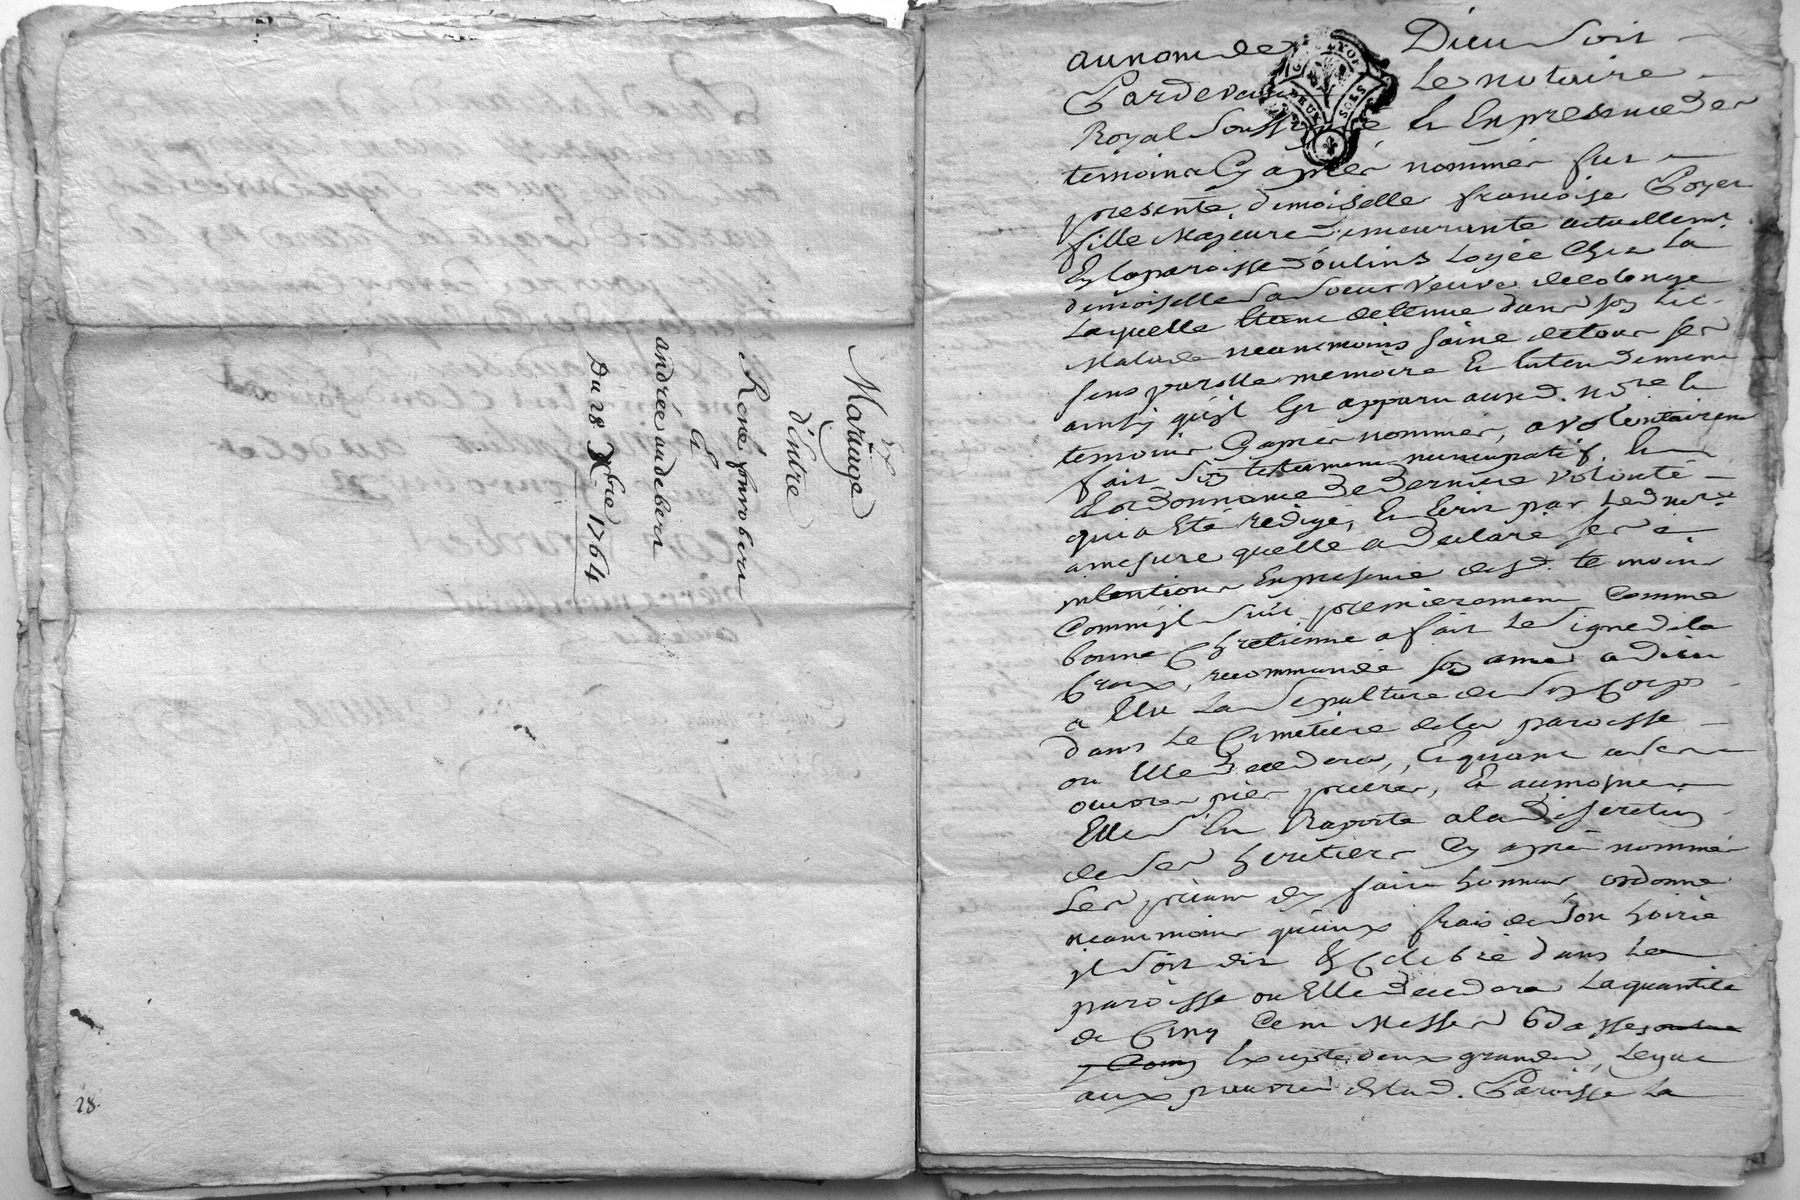 Ex
Mariage
d'entre
René fonrobert
&
andrée audebert
Du 28 Xbre 1764
28
GEN LYON
DEUX SOLS
au nom de Dieu Soit
Pardevant Le notaire
Royal Soussigné & En presence des
temoins Cy aprés nommés fut
presente, demoiselle francoise Poyet
fille Majeure demeurante actuellement
En la paroisse d'oulins Logée Chez La
demoiselle Sa Soeur Veuve
Laquelle détenue dans son Lit
Malade neanmoins saine de tous ses
sens parolle memoire & Entendement
ainsy qu'il Est apparu aud. nore &
temoins Cy aprés nommés, a volontairemt
fait Son testament nuncupatif &
Ordonnance de derniere volonté
qui a Eté redigé, En Ecrit par Led nore
a mesure quelle a declaré ses
intentions En presence desd. temoins
Comm'jl Suit premierement Comme
bonne Chretienne a fait Le Signe de la
Croix, recommandé son ame a dieu
a Elu La Sepulture de Son Corps
dans Le Cimetiere de la paroisse
ou Elle decedera, Et quant a ses
oeuvres pies prieres, Et aumosnes
Elle S'En Raporte a la discretion
de Ses heritiers Cy aprés nommés
Les priant dy faire honneur, ordonne
neanmoins qu'aux frais de Son hoirie
jl Soit dit & Celebré dans La
paroisse ou Elle decedera La quantité
de Cinq Cent Messes basses
Excepté deux grandes, Legue
aux pauvres de Lad. Paroisse La